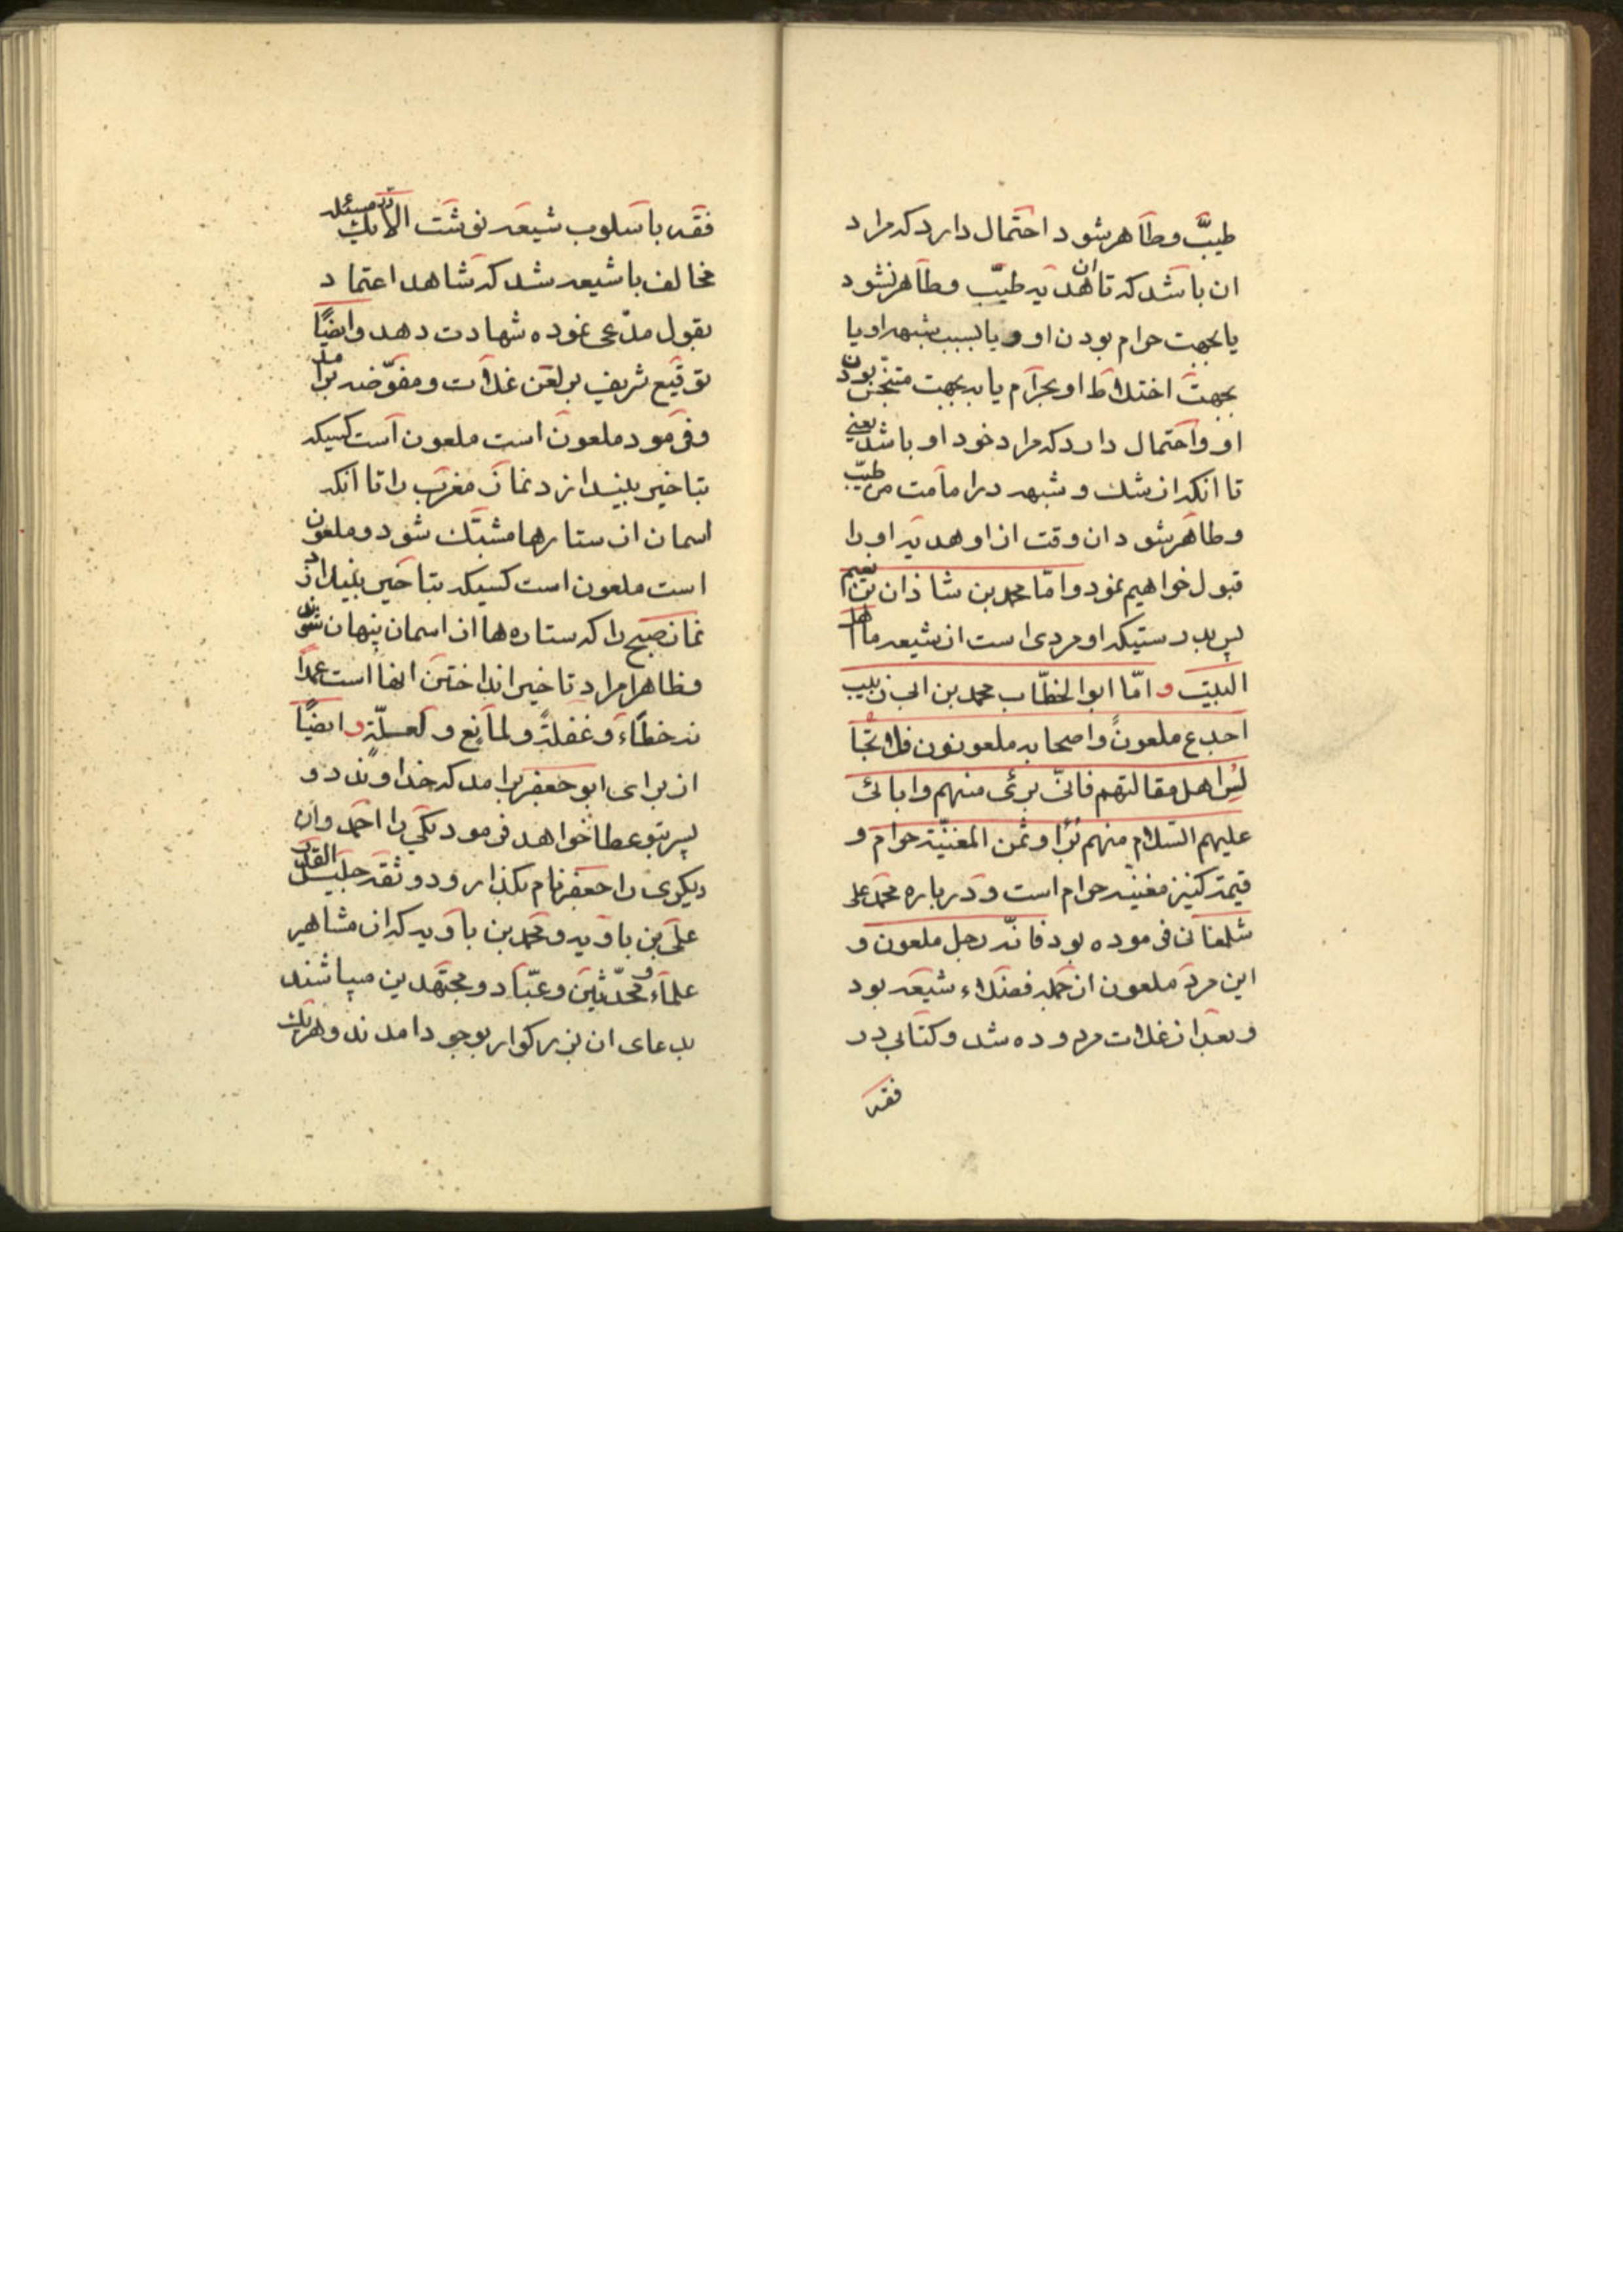 طیبّ و طاهر شود احتمال دارد که مراد
ان باشد که تا ان هدیه طیّب و طاهر نشود
یا بجهت حرام بودن او و یا بسبب شبهه او یا
بجهت اختلاط او بحرام یا به بجهت متنجّس بودن
او و احتمال دارد که مراد خود او باشد یعنی
تا انکه از شك و شبهه در امامت من طیّب
و طاهر شود ان وقت از او هدیه او را
قبول خواهیم نمود و امّا محمد بن شاذان بن نعیم
پس بدرستیکه او مردی است از شیعه ما اهل
البیت و امّا ابوالخطّاب محمد بن ابی زبیب
اجدع ملعون و اصحابه ملعونون فلا تجا
لس اهل مقالتهم فانّی برئی منهم و ابائی
علیهم السّلام منهم بُرٰا و ثمن المغنیّة حرام و
قیمة کنیز مغنیّه حرام است و درباره محمد علی
شلمغانی فرموده بود فانّه رجل ملعون و
این مرد ملعون از جمله فضلاء شیعه بود
و بعد از غلات مردوده شد و کتابی در
فقه
فقه باسلوب شیعه نوشت الا در یك مسئله
مخالف با شیعه شد که شاهد اعتماد
بقول مدّعی نموده شهادت دهد و ایضًا
توقیع شریف بر لعن غلات و مفوّضه برامد
و فرمود ملعون است ملعون است کسیکه
بتاخیر بیندازد نماز مغرب را تا انکه
اسمان از ستارها مشتبك شود و ملعون
است ملعون است کسیکه بتاخیر بیندازد
نماز صبح را که ستاره ها از اسمان پنهان شوند
و ظاهرا مراد تاخیر انداختن انها است عمدًا
نه خطاءً و غفلةً و لمانع و لعسلّةٍ و ایضًا
از برای ابو جعفر برامد که خداوند دو
پسر بتو عطا خواهد فرمود یکی را احمد و ان
دیکری را جعفر نام بکذار و دو ثقه جلیل القدر
علی بن باویه و محمد بن باویه که از مشاهیر
علماء و محدّثین و عبّاد و مجتهدین میباشند
بدعای ان بزرکوار بوجود امدند و هریك